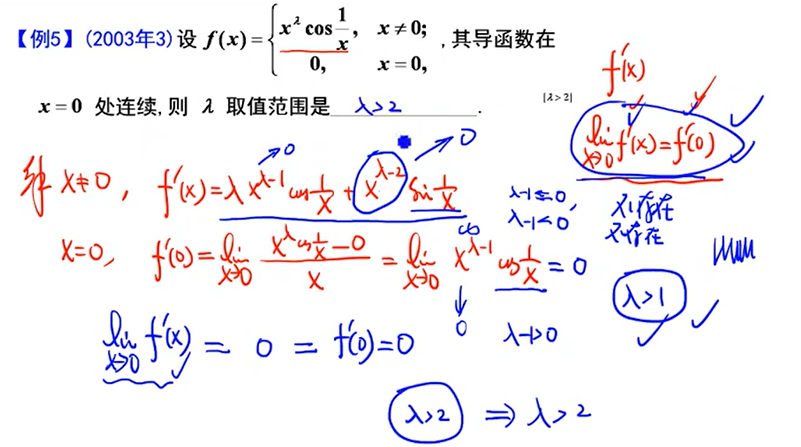 【例5】(2003年3) 设 f(x) = { x^λ cos 1/x, x ≠ 0; 0, x = 0, ,其导函数在
x = 0 处连续,则 λ 取值范围是 λ>2 .
[λ>2]
f'(x)
lim x→0 f'(x) = f'(0)
解 x≠0, f'(x) = λx^(λ-1) cos 1/x + x^(λ-2) sin 1/x
→0
→0
λ-1=0,
λ-1<0
不存在
不存在
x=0, f'(0) = lim x→0 (x^λ cos 1/x - 0)/x = lim x→0 x^(λ-1) cos 1/x = 0
↓
0
λ-1>0
λ>1
lim x→0 f'(x) = 0 = f'(0) = 0
λ>2 ⇒ λ>2